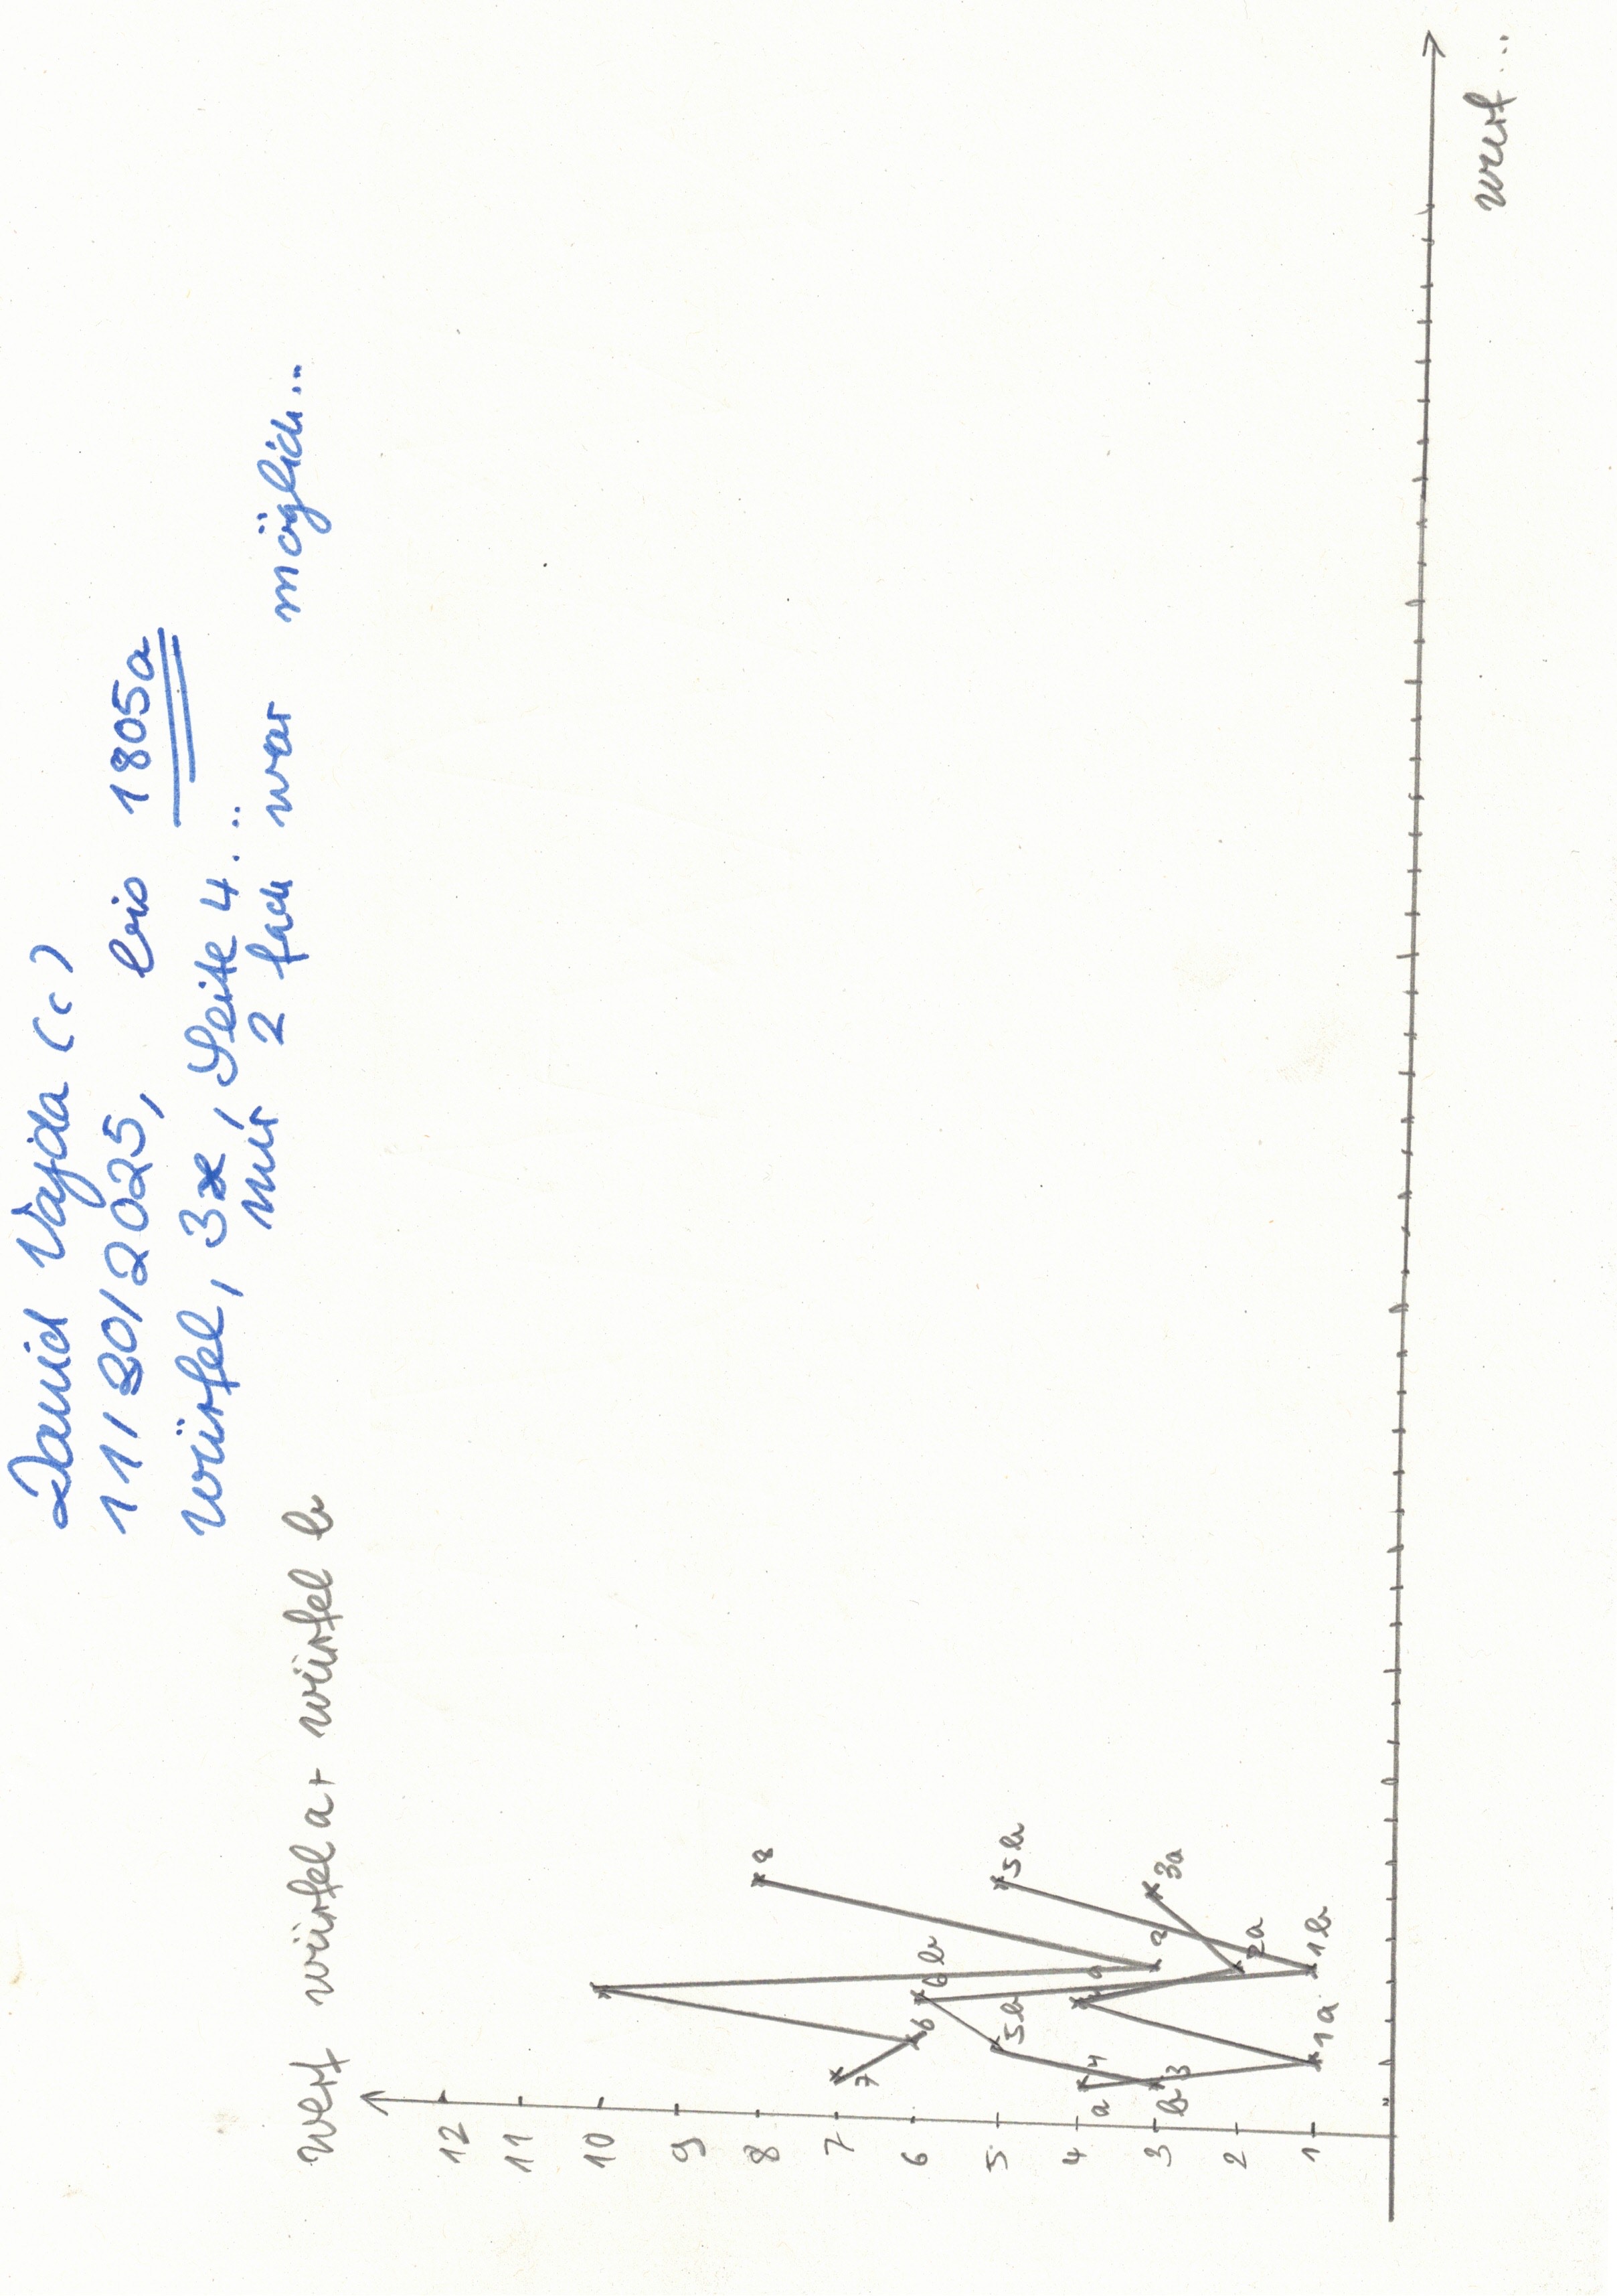 David Vajda (C)
11/30/2025, bis 1805a
würfel, 3x, Seite 4...
nur 2 fach war möglich...
wert würfel a + würfel b
12
11
10
9
8
7
6
5
4
3
2
1
7
6
3
8
a 4
b 3
1a
5b
6b
4a
2a
1b
3a
5b
wurf...